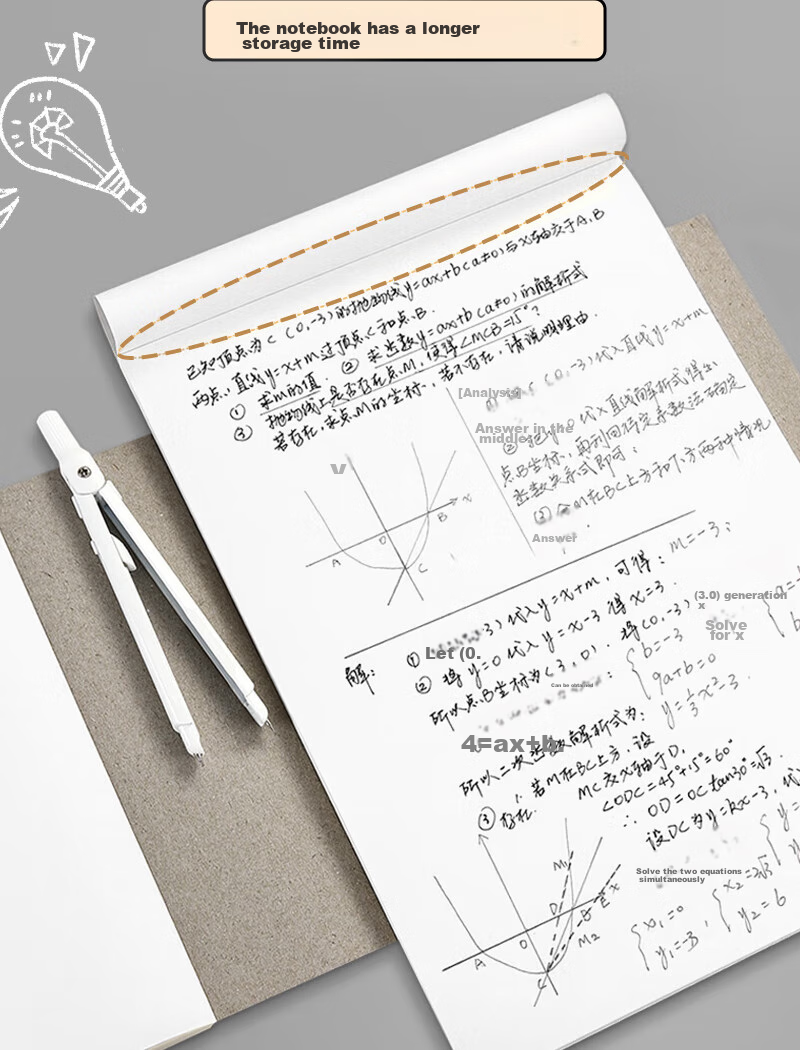 The notebook has a longer
storage time
已知顶点为C(0,-3)的抛物线y=ax+b(a≠0)与x轴交于A,B
两点,直线y=x+m过顶点C和点B.
① 求m的值. ② 求函数y=ax+b(a≠0)的解析式
③ 抛物线上是否存在点M,使得∠MCB=15°?
若存在,求点M的坐标,若不存在,请说明理由.
[Analysis]
(0,-3)代入直线y=x+m
Answer in the
middle;
② 把y=0代入直线解析式得出
点B坐标,再利用待定系数法确定
函数关系式即可;
③ 分M在BC上方和下方两种情况
Answer
V
x
A
O
B
C
解:
① Let (0. -3)代入y=x+m,可得:m=-3;
② 将y=0代入y=x-3得x=3.
所以点B坐标为(3,0).将(0,-3)
(3.0) generation
x
Solve
for x
Can be obtained
:
b=-3
9a+b=0
4=ax+b
y=1/3x²-3.
所以二次函数解析式为:
③ 存在. 1. 若M在BC上方,设
MC交x轴于D,
∠ODC=45°+15°=60°
∴ OD=OC tan30°=√3.
设DC为y=kx-3,代
Solve the two equations
simultaneously
x₁=0
y₁=-3,
x₂=3√3
y₂=6
M₁
D
B
E
x
O
A
M₂
C